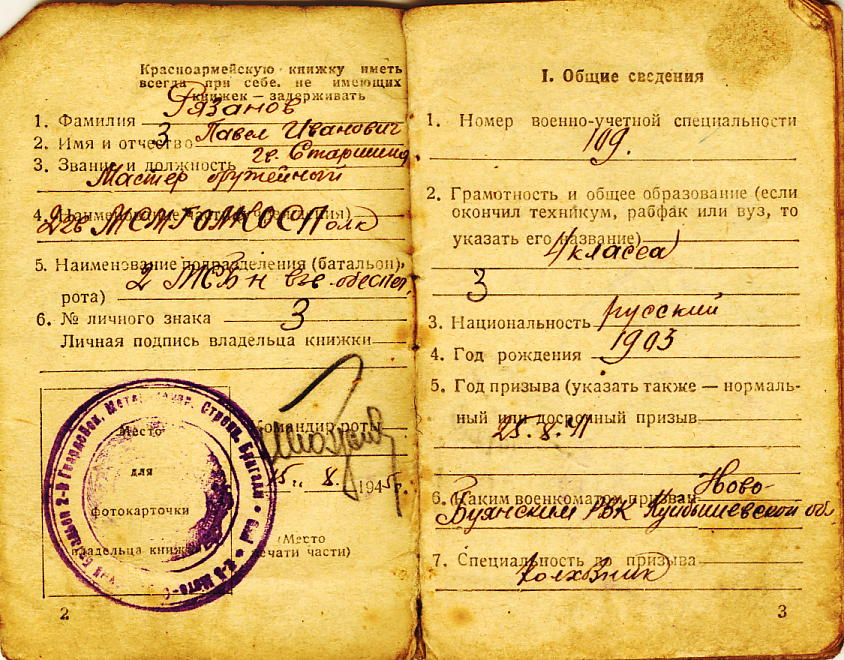 Красноармейскую книжку иметь
всегда при себе. не имеющих
книжек — задерживать
1. Фамилия Рязанов
2. Имя и отчество Павел Иванович
3. Звание и должность гв. Старшина
Мастер оружейный
4. Наименование части
2 гв
5. Наименование подразделения (батальон,
рота) 2
6. № личного знака
Личная подпись владельца книжки
Командир роты
15 " 8. 1945 г.
Место
для
фотокарточки
владельца книжки
(Место
печати части)
2-й Гвардейск. Строп. Бригады
2
I. Общие сведения
1. Номер военно-учетной специальности
109.
2. Грамотность и общее образование (если
окончил техникум, рабфак или вуз, то
указать его название)
4 класса
3
3. Национальность русский
4. Год рождения 1903
5. Год призыва (указать также — нормаль-
ный или досрочный призыв
25.8.41
6. Каким военкоматом призван Ново-
Буянским РВК Куйбышевской об
7. Специальность до призыва
колхозник
3